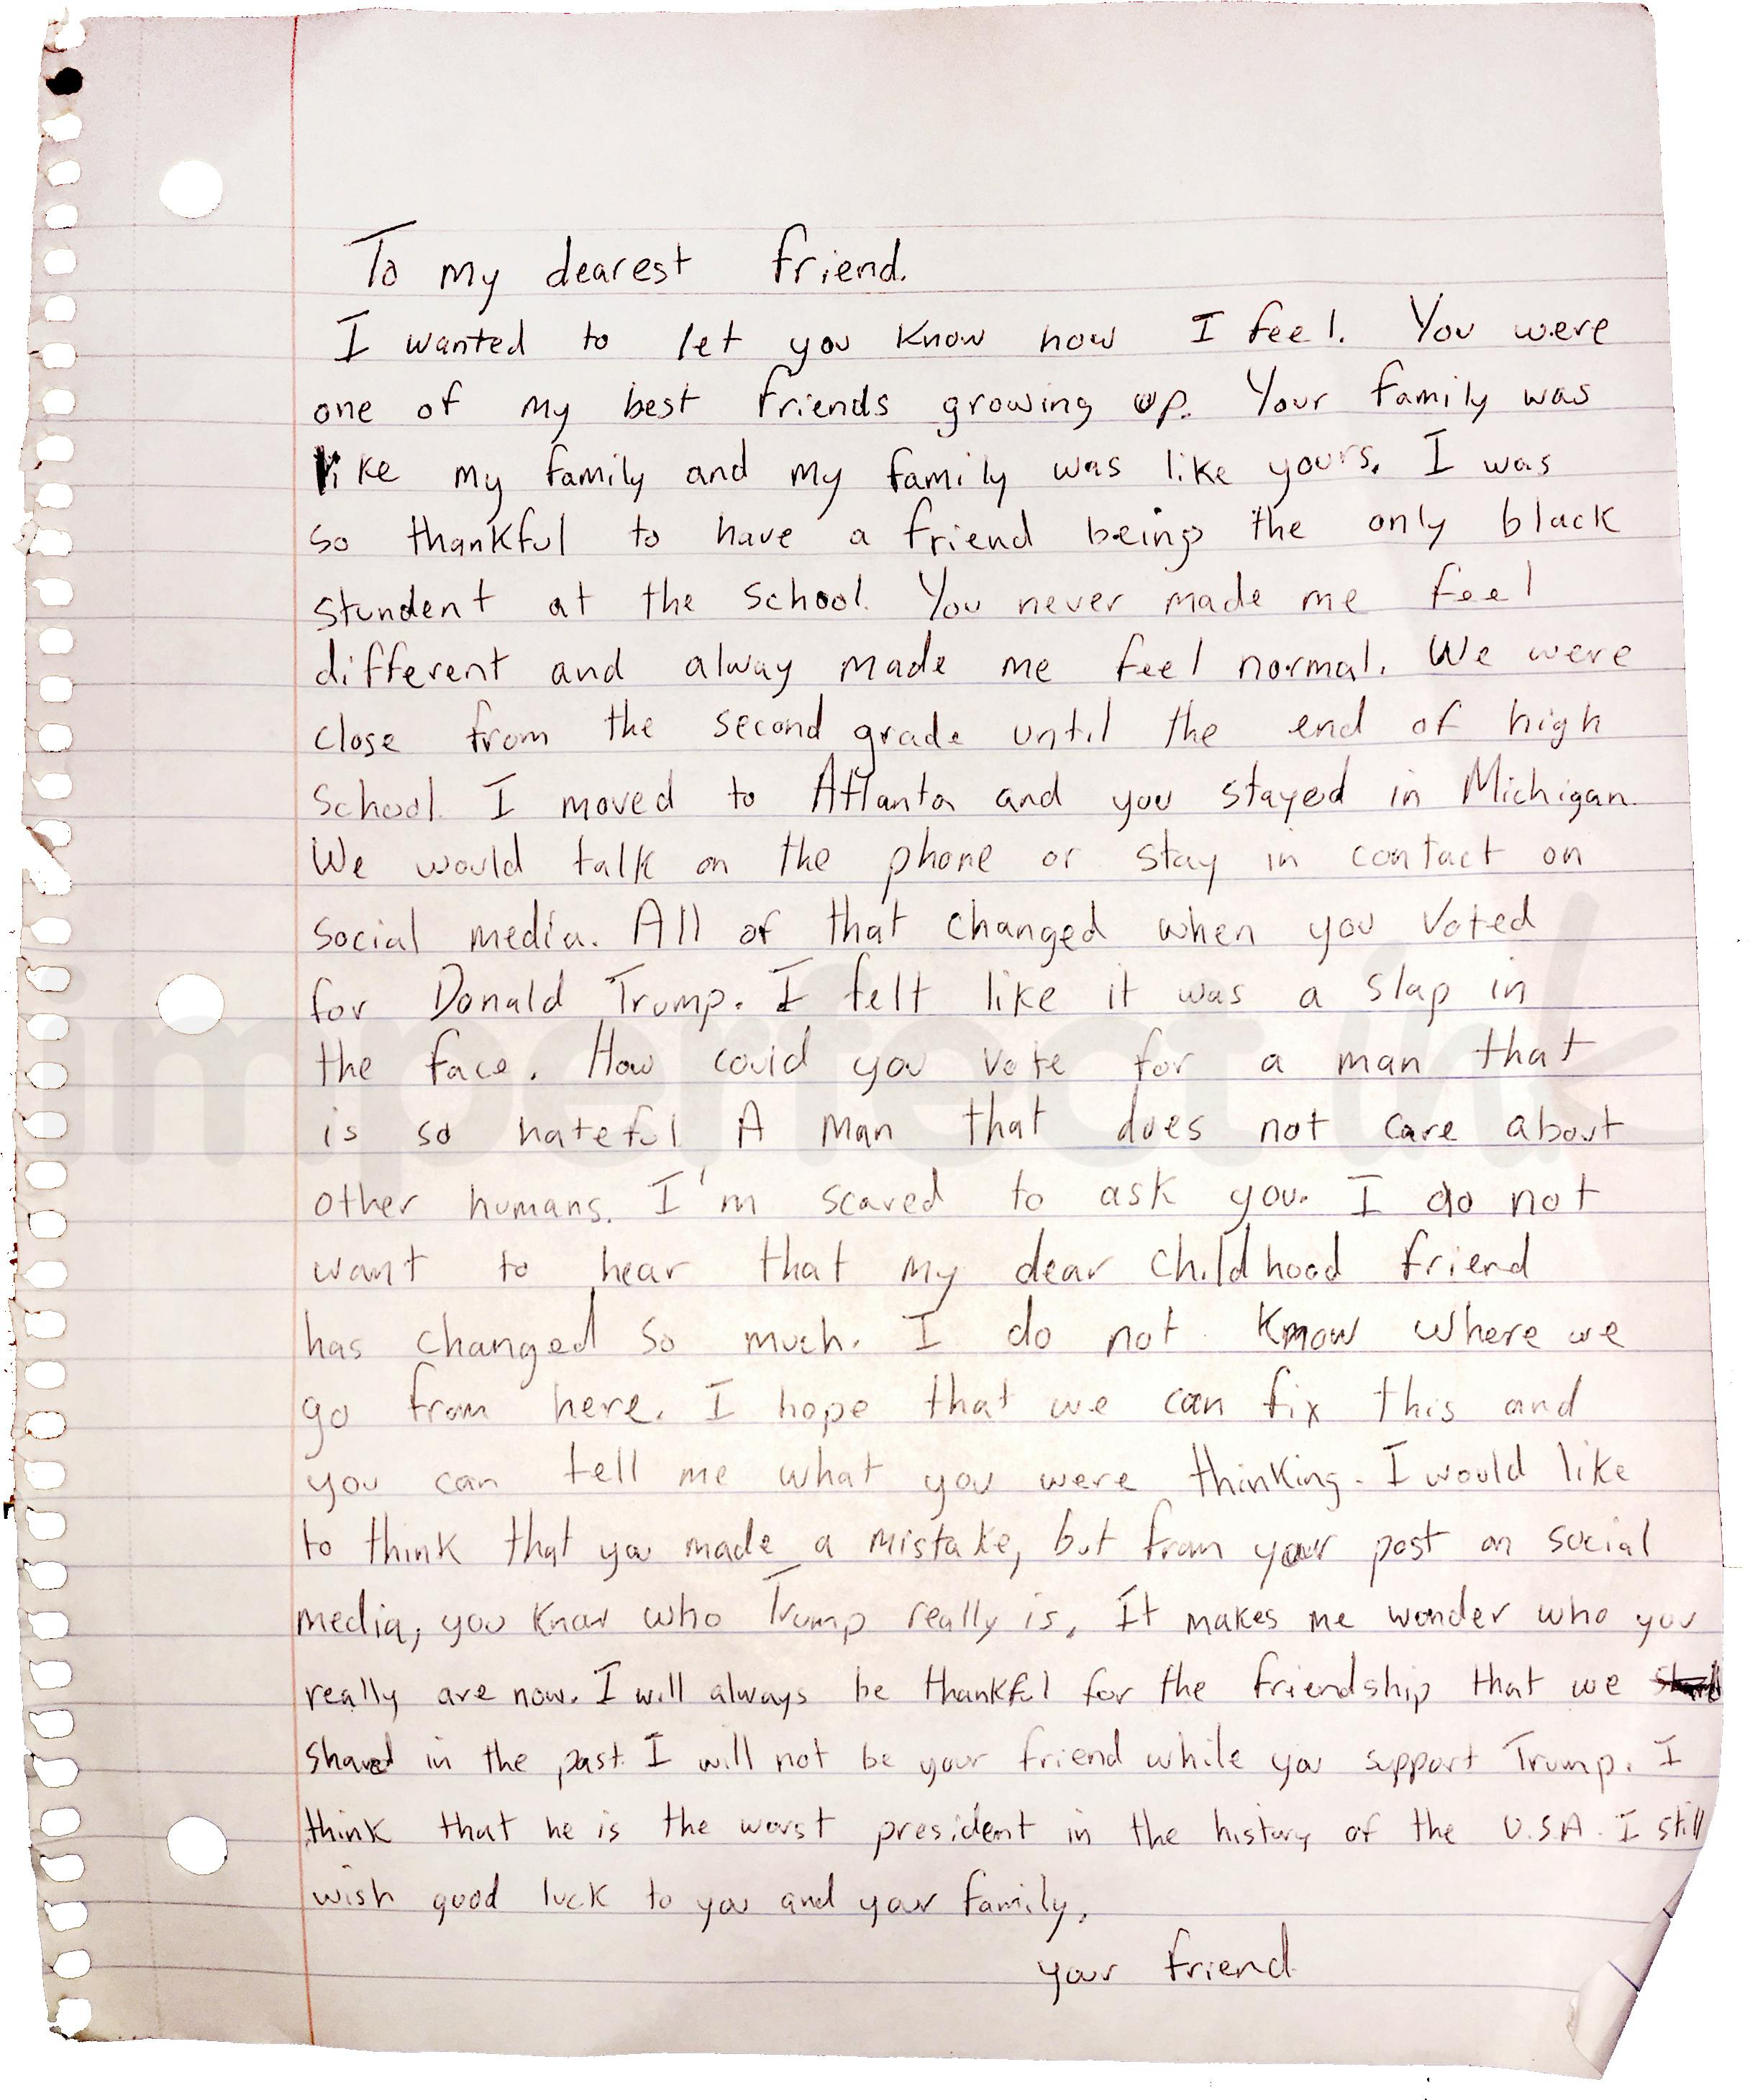 To my dearest friend.
I wanted to let you know how I feel. You were
one of my best friends growing up. Your family was
like my family and my family was like yours. I was
so thankful to have a friend being the only black
stundent at the school. You never made me feel
different and alway made me feel normal. We were
close from the second grade until the end of high
school. I moved to Atlanta and you stayed in Michigan.
We would talk on the phone or stay in contact on
social media. All of that changed when you voted
for Donald Trump. I felt like it was a slap in
the face. How could you vote for a man that
is so hateful A man that does not care about
other humans. I'm scared to ask you. I do not
want to hear that my dear childhood friend
has changed so much. I do not know where we
go from here. I hope that we can fix this and
you can tell me what you were thinking. I would like
to think that you made a mistake, but from your post on social
media, you know who Trump really is. It makes me wonder who you
really are now. I will always be thankful for the friendship that we
shared in the past. I will not be your friend while you support Trump. I
think that he is the worst president in the history of the U.S.A. I still
wish good luck to you and your family.
your friend
imperfect ink